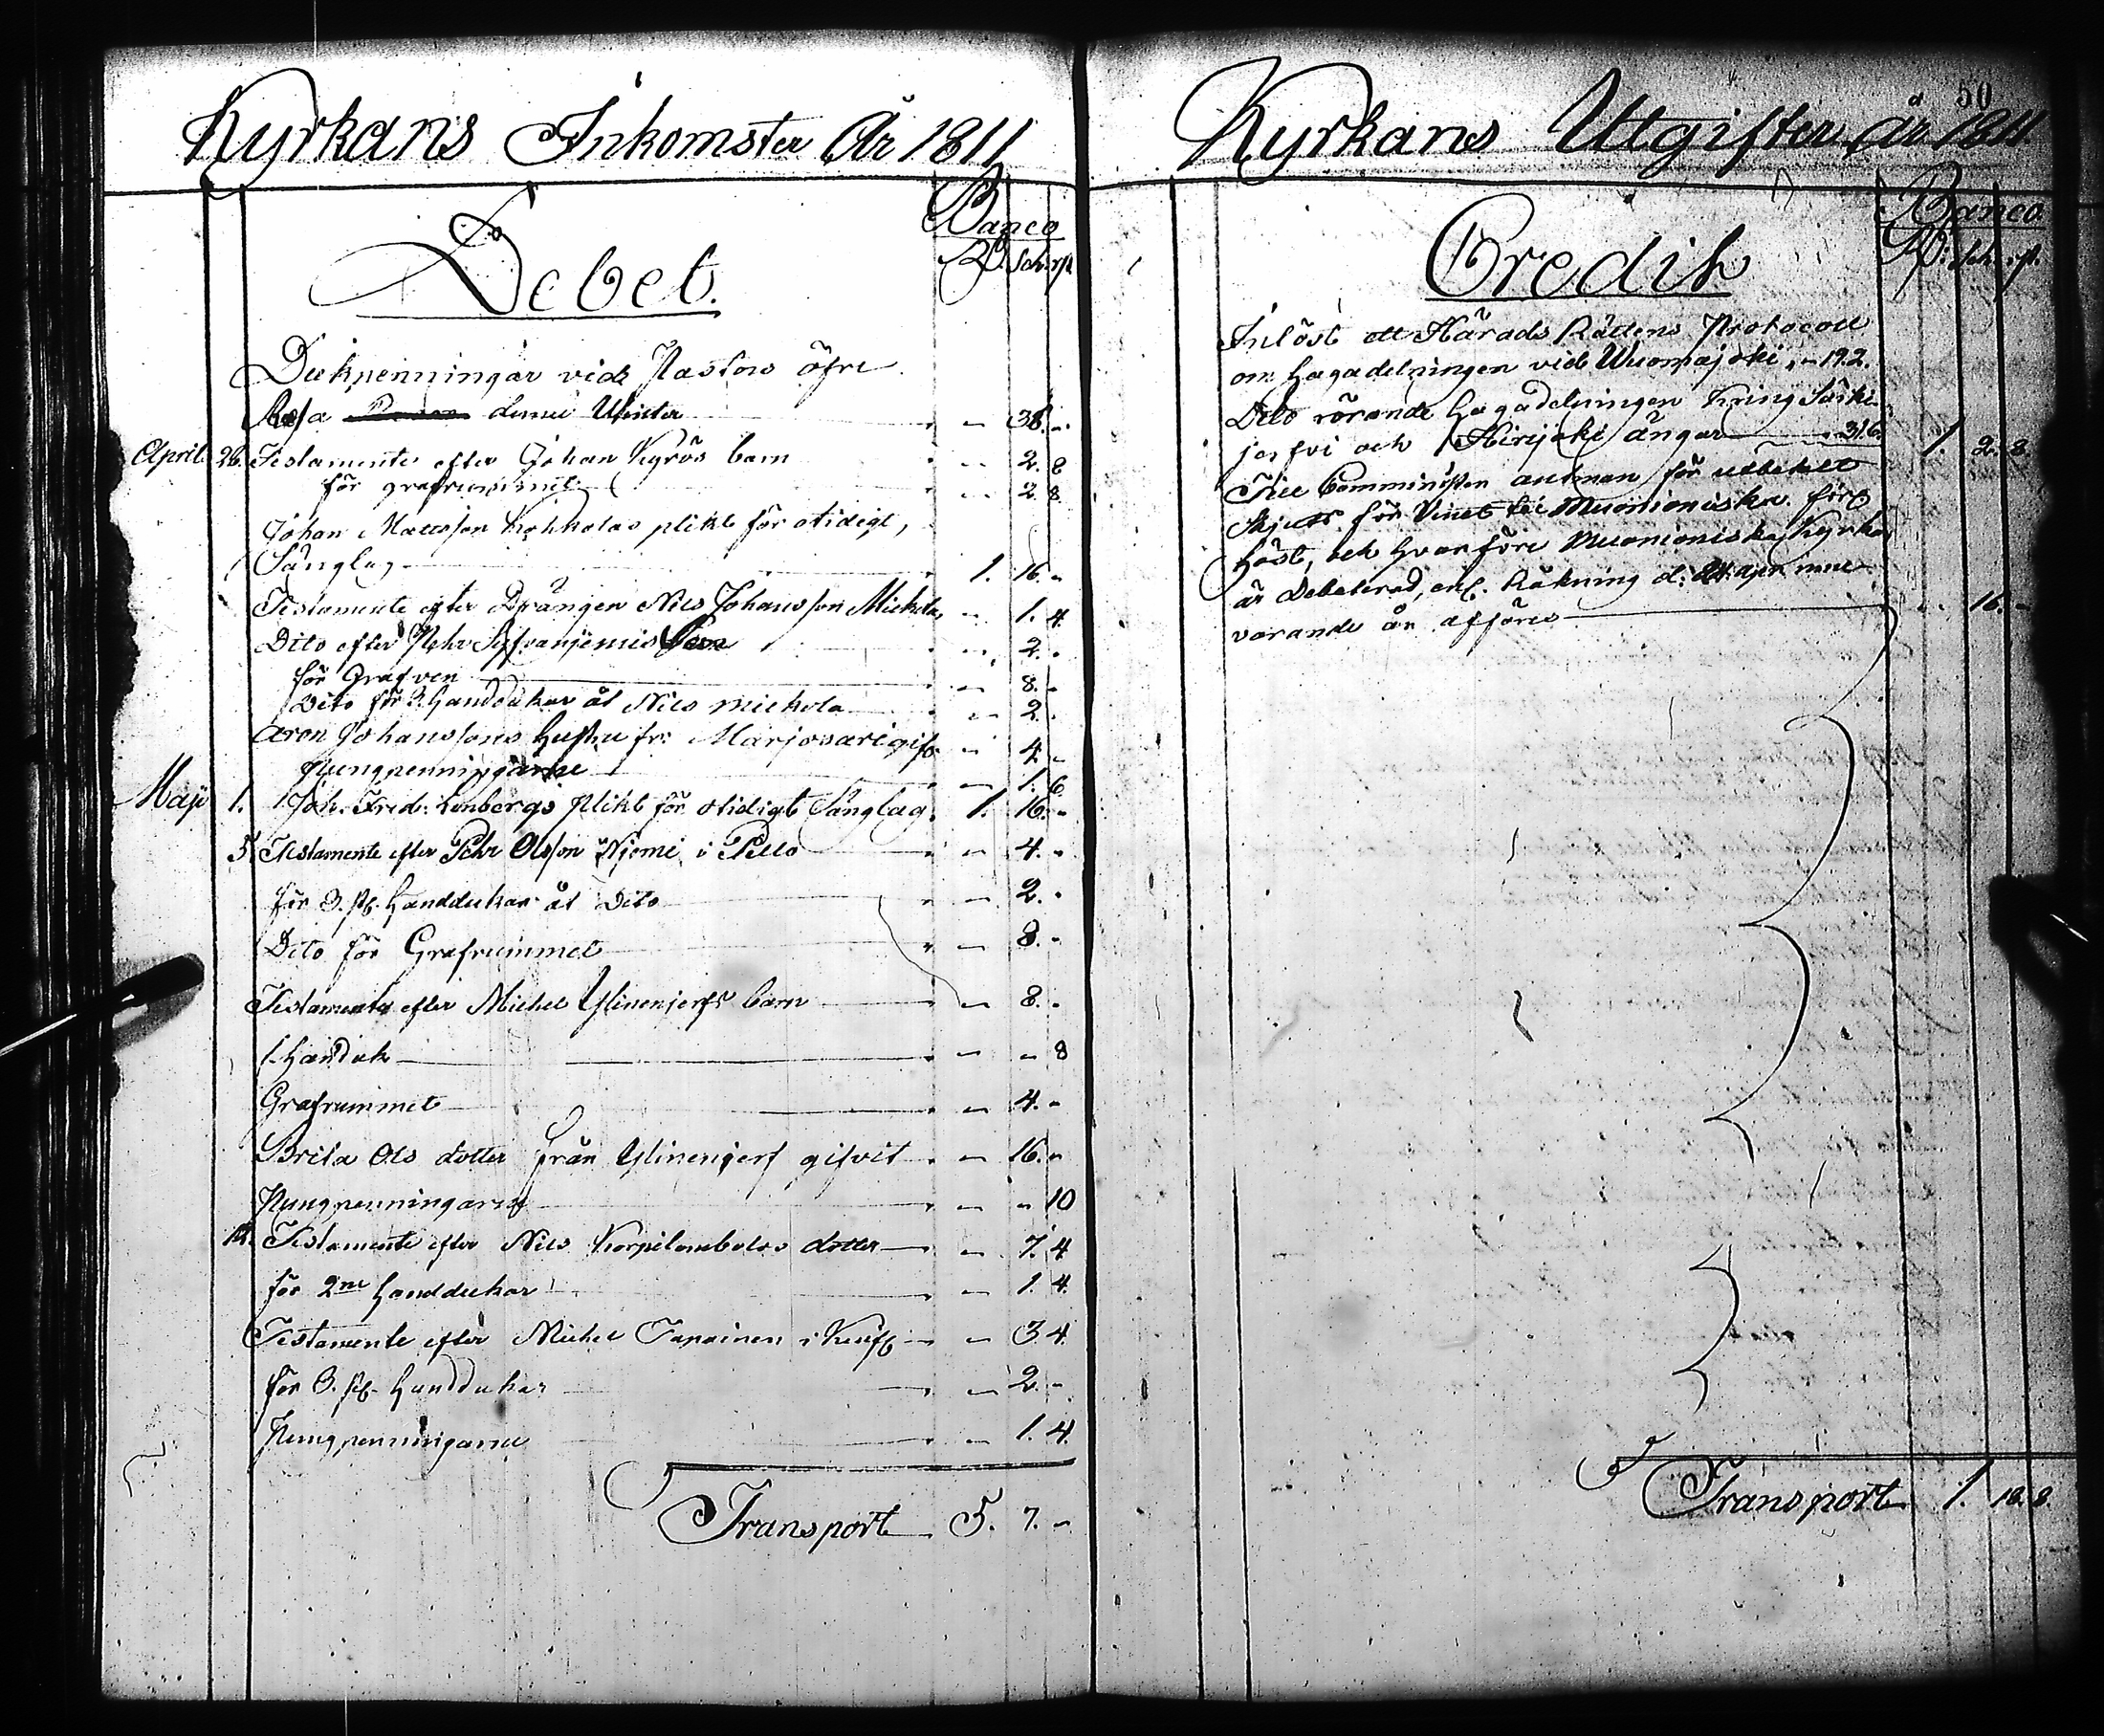 Kyrkans Inkomster År 1811
Debet.
Banco
Rd. sch. rst.
Diskpenningar vid Pastors öfre
Resa denna Winter " - 38. -
April 26. Testamente efter Johan Kyrös barn " - 2. 8
för grafrummet " - 2. 8.
Johan Mattsson Kohkolas plikt för otidigt,
Sänglag 1. 16. -
Testamente efter Drängen Nils Johansson Michela " - 1. 4.
Dito efter Pehr 2. -
för Grafven " - 8. -
Dito för 3. Handdukar åt Nils Michela " - 2. -
Aron Johanssons Hustru fr: Marjosari gifv. " - 4. -
Pungpenningarne " - 1. 6.
Maji 1. Joh. Fred: Lenbergs plikt för otidigt Sänglag. 1. 16. -
5. Testamente efter Pehr Olsson Niemi i Pello " - 4. -
för 3. st. Handdukar åt Dito " - 2. -
Dito för Grafrummet " - 8. -
Testamente efter Michel Ylinenjerfs barn " - 8. -
1. Handuk " - - 8
Grafrummet " - 4. -
Brita Ols dotter från Ylinenjerf gifvit " - 16. -
Pungpenningarne " - - 10
12. Testamente efter Nils Korpilombolos dotter " - 7. 4
för 2ne Handdukar " - 1. 4.
Testamente efter Michel Tapainen i " - 3 4.
för 3. st. Handdukar " - 2. -
Pungpenningarne " - 1. 4.
Transport 5. 7. -
50
Kyrkans Utgifter år 1811.
Credit
Banco
Rd. sch. rst.
Inlöst ett Härads Rättens Protocoll
om hagadelningen vid Wuomajoki, " - 19.2.
Dito rörande hagadelningen kring Särki-
jerfvi och Hirijoki ängar " 31.6. 1. 2. 8.
Till Comministern Antman för utbetalt
Skjuts för Vinet till Muonioniska förl.
höst, och hvarföre Muonioniska Kyrka
är Debeterad, enl. Räkning d: 24. apr. inne-
varande år afföres " - 16. -
Transport 1. 18. 8.